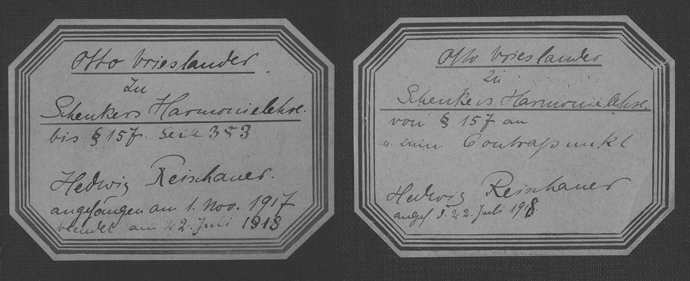 Otto Vrieslander.
Zu
Schenkers Harmonielehre.
bis § 157. Seite 383
Hedwig Reischauer.
angefangen am 1. Nov. 1917
beendet am 22. Juni 1918
Otto Vrieslander
zu
Schenkers Harmonielehre.
von § 157 an
u. zum Contrapunkt
Hedwig Reischauer
angef. 22. Juli 1918.